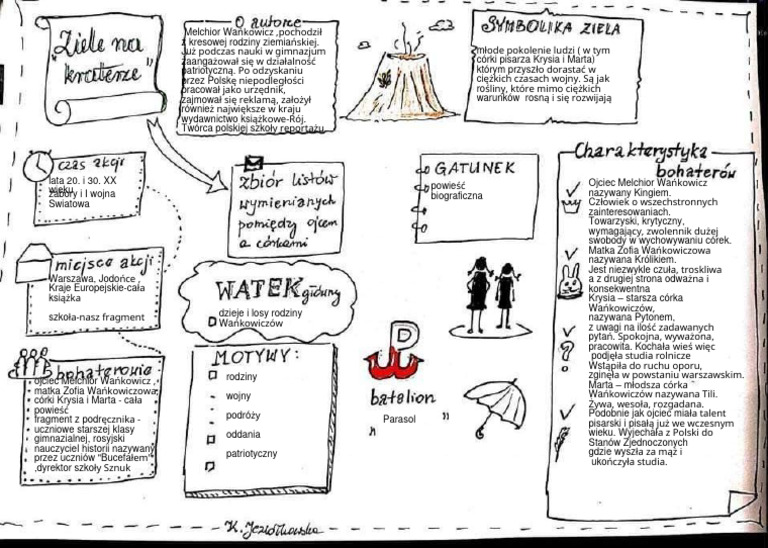 "Ziele na
kraterze"
O autorze
Melchior Wańkowicz ,pochodził
z kresowej rodziny ziemiańskiej.
Już podczas nauki w gimnazjum
zaangażował się w działalność
patriotyczną. Po odzyskaniu
przez Polskę niepodległości
pracował jako urzędnik,
zajmował się reklamą, założył
również największe w kraju
wydawnictwo książkowe-Rój.
Twórca polskiej szkoły reportażu
SYMBOLIKA ZIELA
młode pokolenie ludzi ( w tym
córki pisarza Krysia i Marta)
którym przyszło dorastać w
ciężkich czasach wojny. Są jak
rośliny, które mimo ciężkich
warunków rosną i się rozwijają
czas akcji
lata 20. i 30. XX
wieku
zabory i I wojna
Światowa
zbiór listów
wymienianych
pomiędzy ojcem
a córkami
GATUNEK
powieść
biograficzna
miejsce akcji
Warszawa, Jodońce ,
Kraje Europejskie-cała
książka
szkoła-nasz fragment
WĄTEK główny
dzieje i losy rodziny
Wańkowiczów
bohaterowie
ojciec Melchior Wańkowicz ,
matka Zofia Wańkowiczowa
córki Krysia i Marta - cała
powieść
fragment z podręcznika -
uczniowe starszej klasy
gimnazialnej, rosyjski
nauczyciel historii nazywany
przez uczniów "Bucefałem"
,dyrektor szkoły Sznuk
MOTYWY:
rodziny
wojny
podróży
oddania
patriotyczny
batalion
" Parasol "
Charakterystyka
bohaterów
Ojciec Melchior Wańkowicz
nazywany Kingiem.
Człowiek o wszechstronnych
zainteresowaniach.
Towarzyski, krytyczny,
wymagający, zwolennik dużej
swobody w wychowywaniu córek.
Matka Zofia Wańkowiczowa
nazywana Królikiem.
Jest niezwykle czuła, troskliwa
a z drugiej strona odważna i
konsekwentna
Krysia – starsza córka
Wańkowiczów,
nazywana Pytonem,
z uwagi na ilość zadawanych
pytań. Spokojna, wyważona,
pracowita. Kochała wieś więc
podjęła studia rolnicze
Wstąpiła do ruchu oporu,
zginęła w powstaniu warszawskim.
Marta – młodsza córka
Wańkowiczów nazywana Tili.
Żywa, wesoła, rozgadana.
Podobnie jak ojciec miała talent
pisarski i pisałą już we wczesnym
wieku. Wyjechała z Polski do
Stanów Zjednoczonych
gdzie wyszła za mąż i
ukończyła studia.